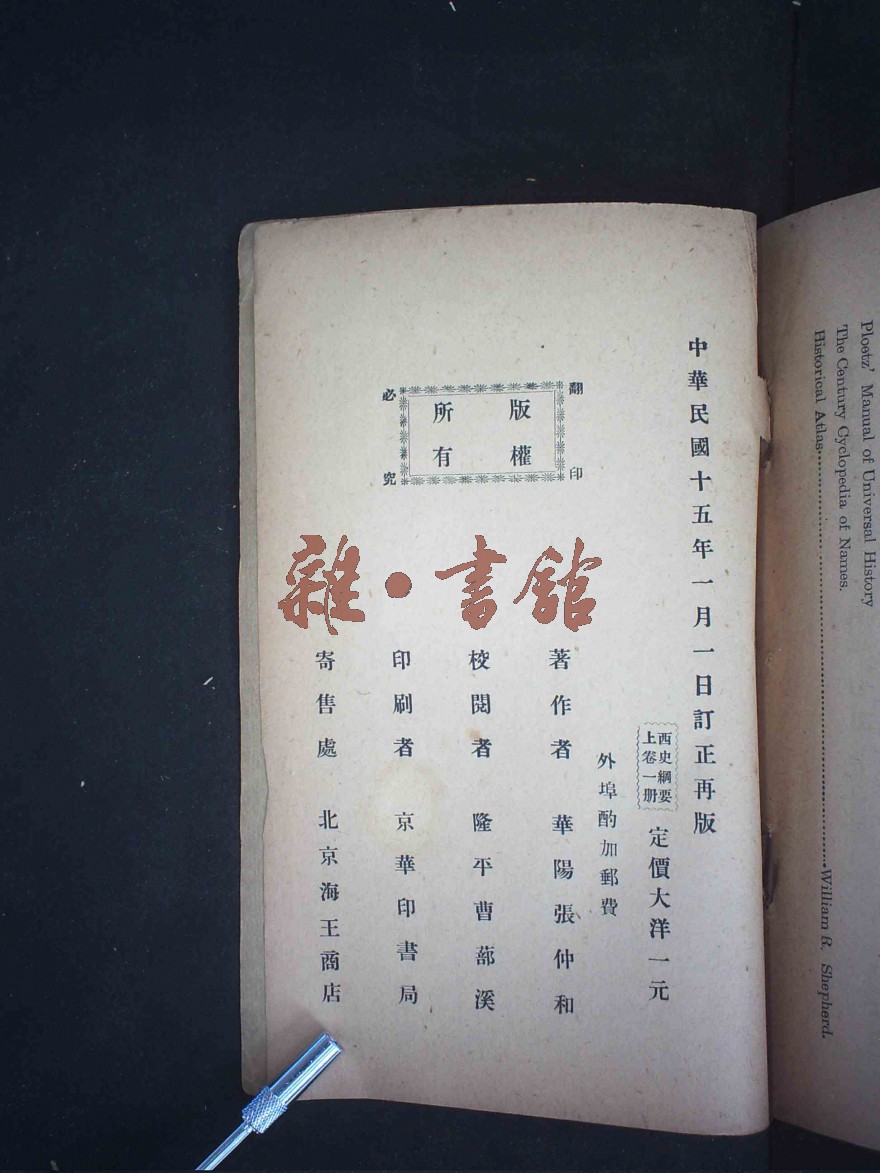 Ploetz' Manual of Universal History
The Century Cyclopedia of Names.
Historical Atlas........William R. Shepherd.
中華民國十五年一月一日訂正再版
西史綱要
上卷一册
定價大洋一元
外埠酌加郵費
著作者 華陽張仲和
校閱者 隆平曹蔀溪
印刷者 京華印書局
寄售處 北京海王商店
翻印
版權
所有
必究
雜·書館